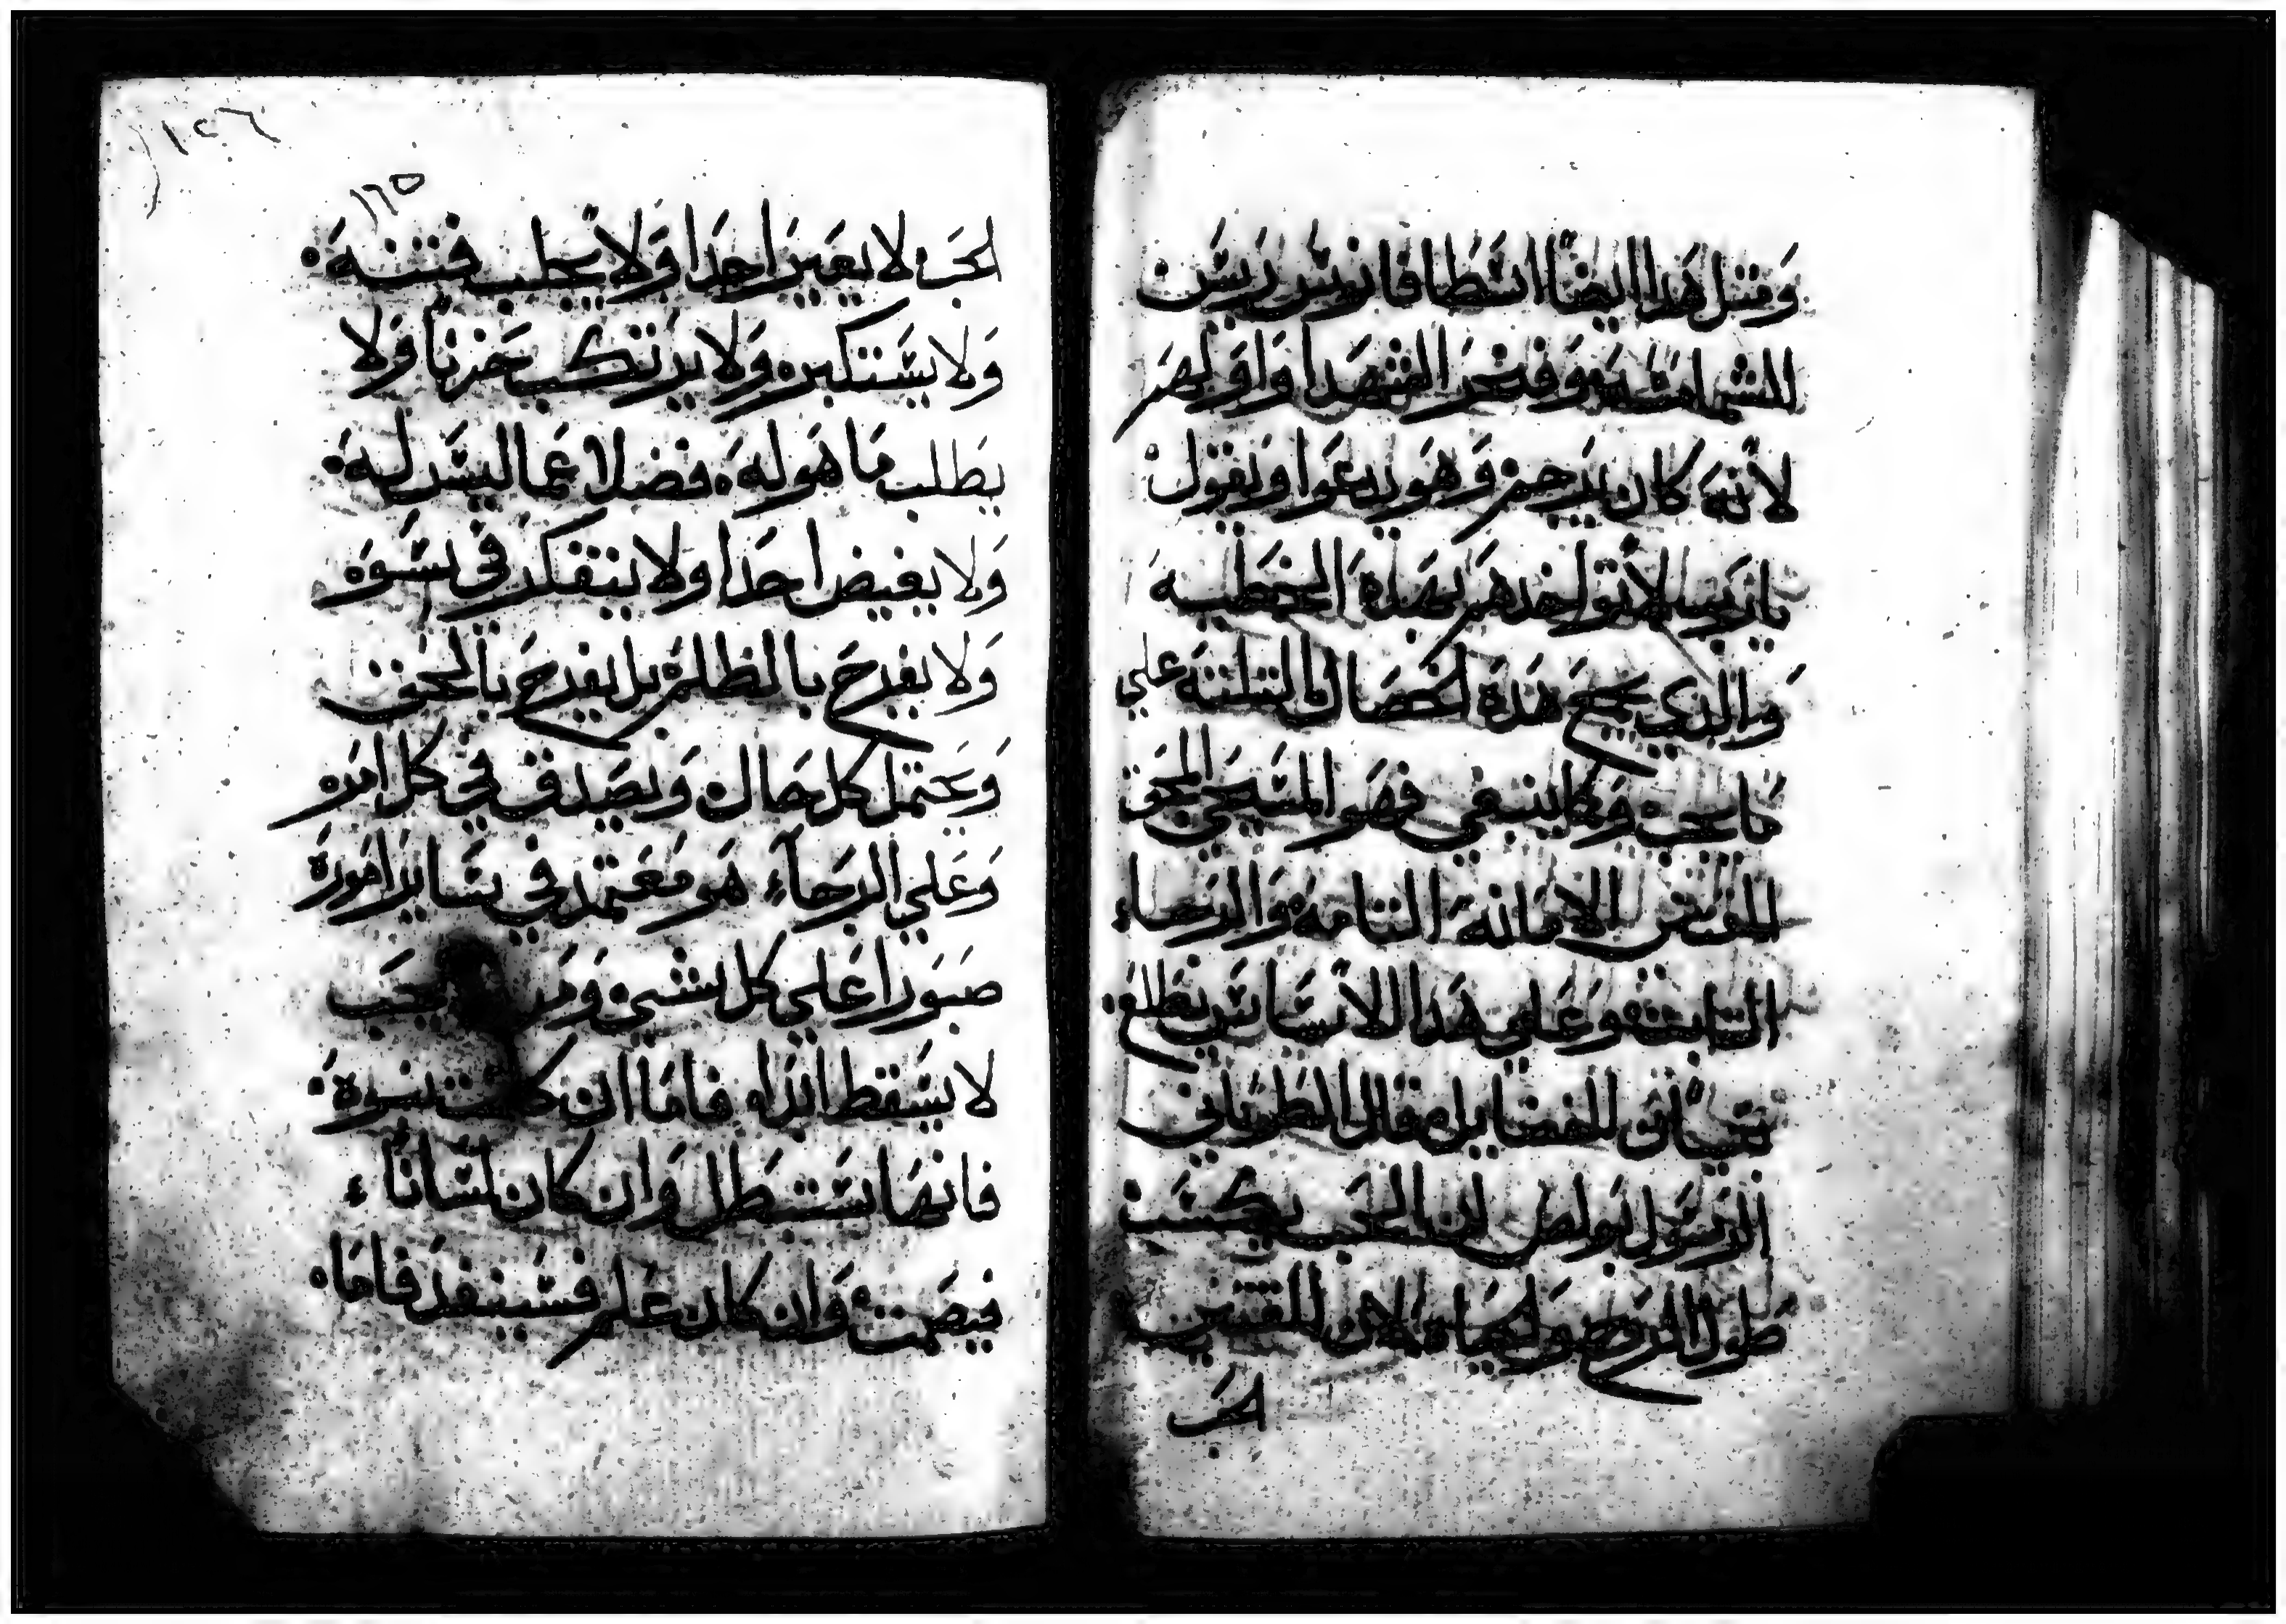 ومثل هدا ايضا اسطافانوس ريس
الشمامسه وفخر الشهدا واولهم
لانه كان يرجم وهو يدعوا ويقول
يارب لا تواخدهم بهده الخطيه
والدي يجمع هده الخصال التلتة علي
ما يجب وكما ينبغي فهو المسيحي الحق
المقتني الامانة التامة والرجاء
التابت وعلي هدا الاساس يطلع
بنيان الفضايل قال الطوباني
الرسول بولص ان الحب يكسب
طول الروح والحياة لان المقتني
الحب
١٢٦
١٢٥
الحب لا يعير احدا ولا يجلب فتنه
ولا يستكبر ولا يرتكب حزنا ولا
يطلب ما هو له فضلا عما ليس له
ولا يغيض احدا ولا يتفكر في سوه
ولا يفرح بالظلم بل يفرح بالحق
ويحتمل كل حال ويصدق في كل امره
وعلي الرجاء هو معتمد في ساير اموره
صبورا علي كل شي يحب
لا يسقط ابدا فاما ان كانت نبوة
فانها ستبطل وان كان لسانا
فيصمت وان كان علم فسينفد فاما